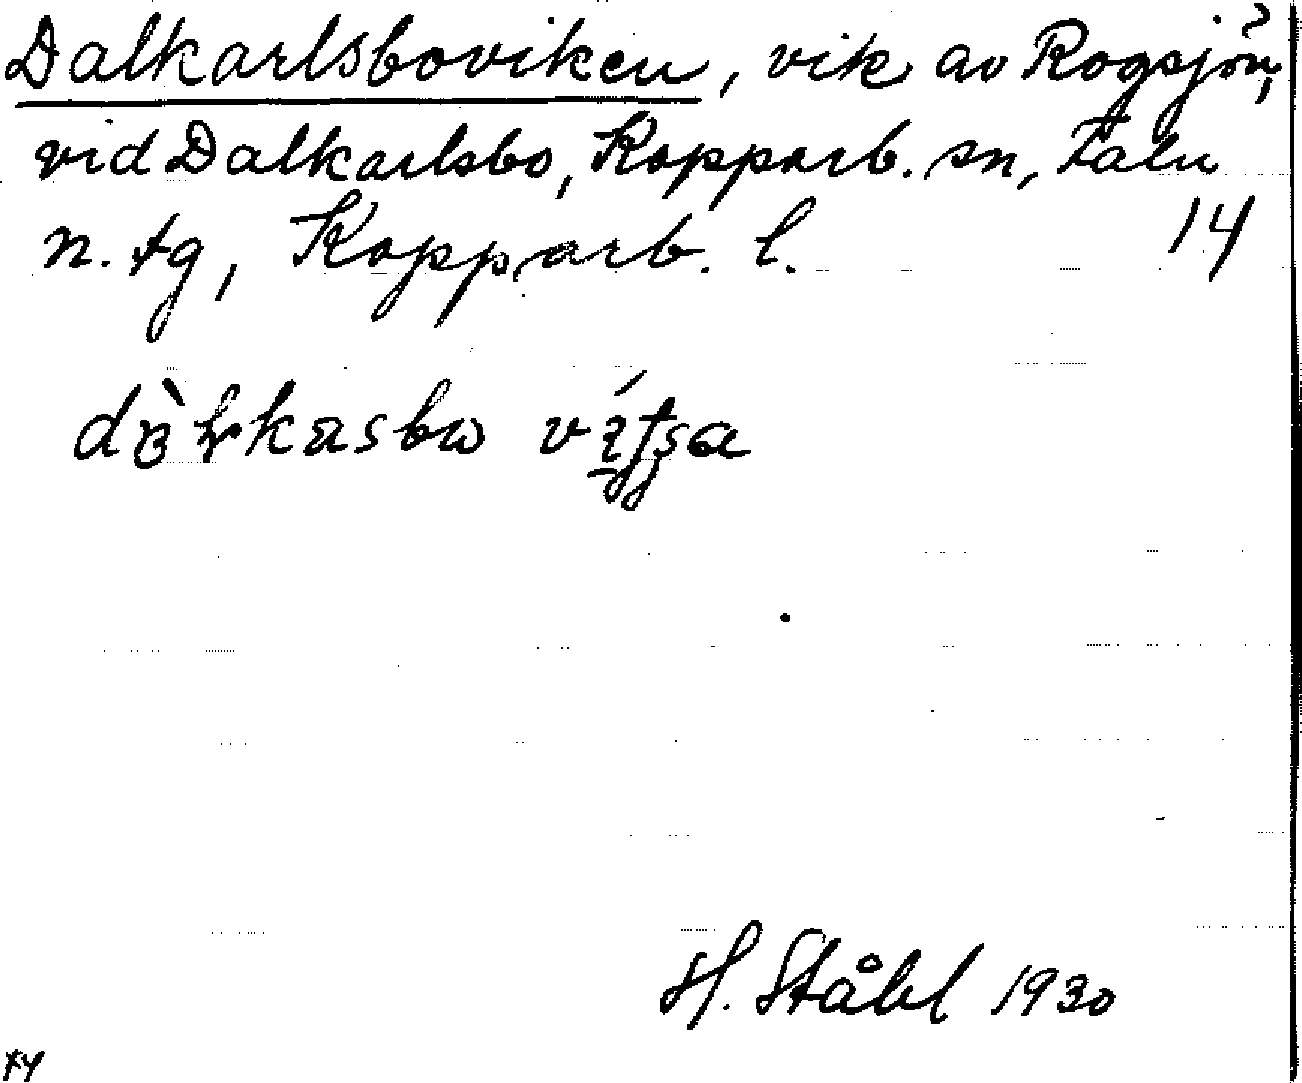 Dalkarlsboviken, vik av Rogsjön,
vid Dalkarlsbo, Kopparb. sn, Falu
n. tg, Kopparb. l. 14
H. Ståhl 1930